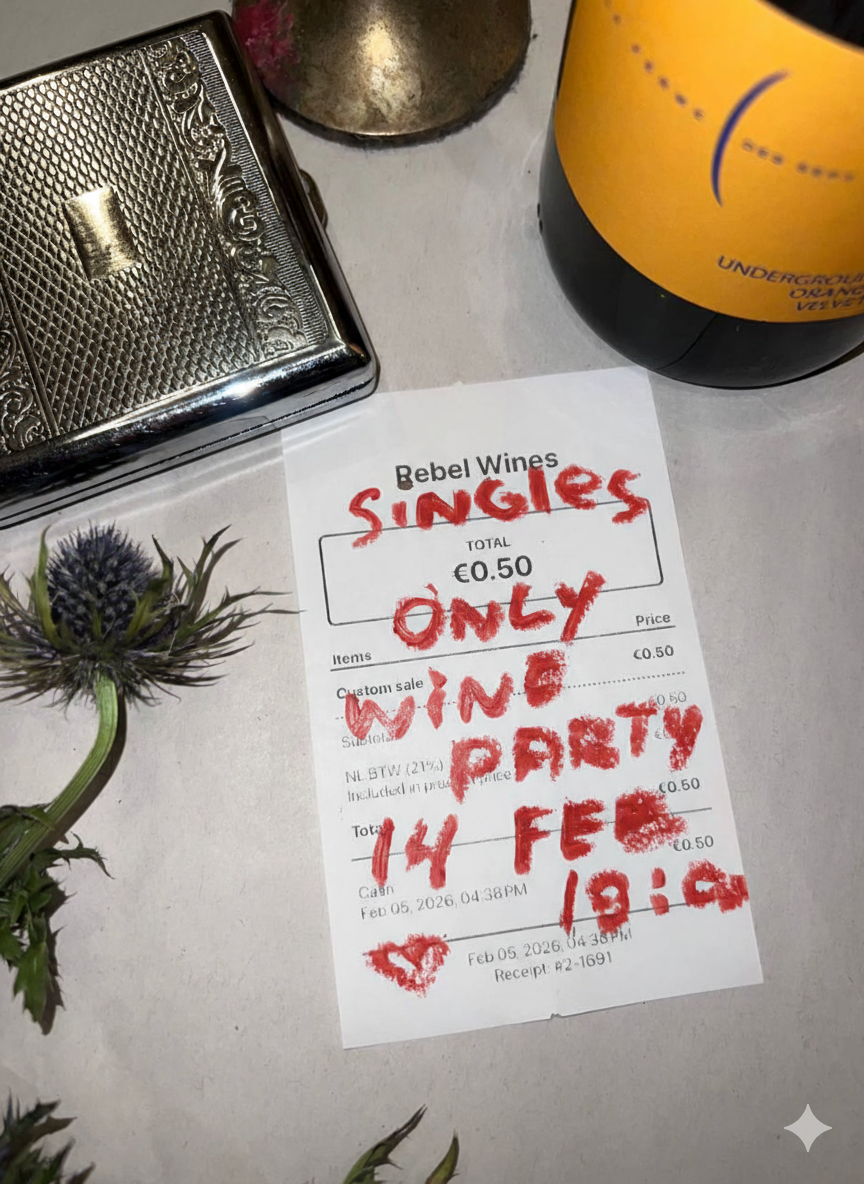 UNDERGROU
ORANG
VELVET
Rebel Wines
SiNGles
TOTAL
€0.50
ONLY
Items Price
Custom sale €0.50
WiNE
Subtotal €0.50
PARTY
NL BTW (21%)
Included in
Total €0.50
14 FEB
Cash €0.50
Feb 05, 2026, 04:38PM
Feb 05, 2026, 04:38PM
Receipt: #2-1691